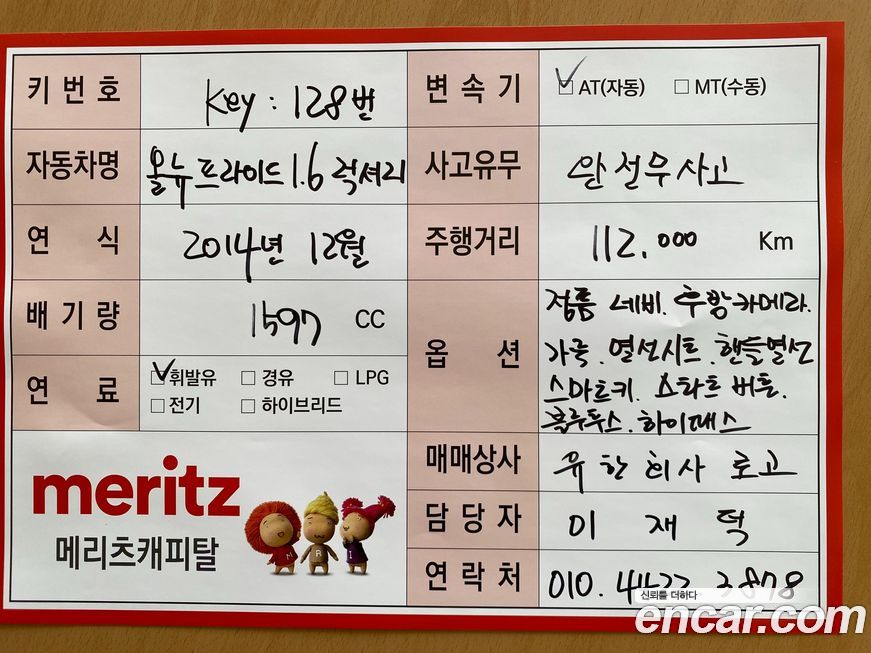 키 번 호
Key : 128번
변 속 기
AT(자동) MT(수동)
자동차명
올뉴프라이드 1.6 럭셔리
사고유무
완전무사고
연 식
2014년 12월
주행거리
112.000 Km
배 기 량
1597 CC
옵 션
정품 네비. 후방카메라.
가죽. 열선시트. 핸들열선
스마트키. 스타트 버튼.
블루투스. 하이패스
연 료
휘발유 경유 LPG
전기 하이브리드
meritz
메리츠캐피탈
M R I
매매상사
유한회사 로고
담 당 자
이 재 덕
연 락 처
010.
신뢰를 더하다
encar.com